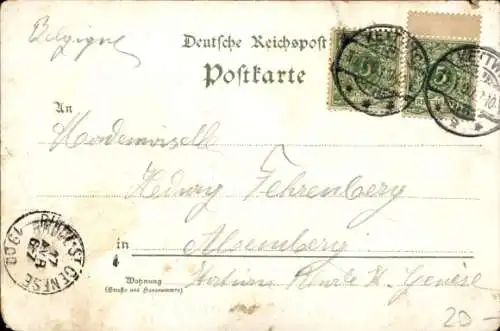 Belgique
Deutsche Reichspost
Postkarte
An
Mademoiselle
Hedwig Fehrenberg
in Alsemberg
Wohnung
(Straße und Hausnummer)
Station Rhode St. Genèse
RHODE-ST-GENÈSE
1900
5 5
KETTW
20-